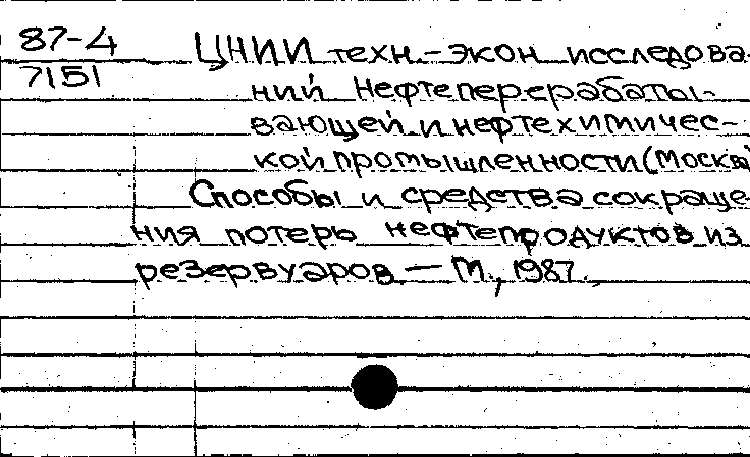 87-4
7151
ЦНИИ техн.-экон исследова
ний нефтеперерабаты-
вающей и нефтехимичес-
кой промышленности (Москва)
Способы и средства сокраще
ния потерь нефтепродуктов из
резервуаров. — М., 1987.